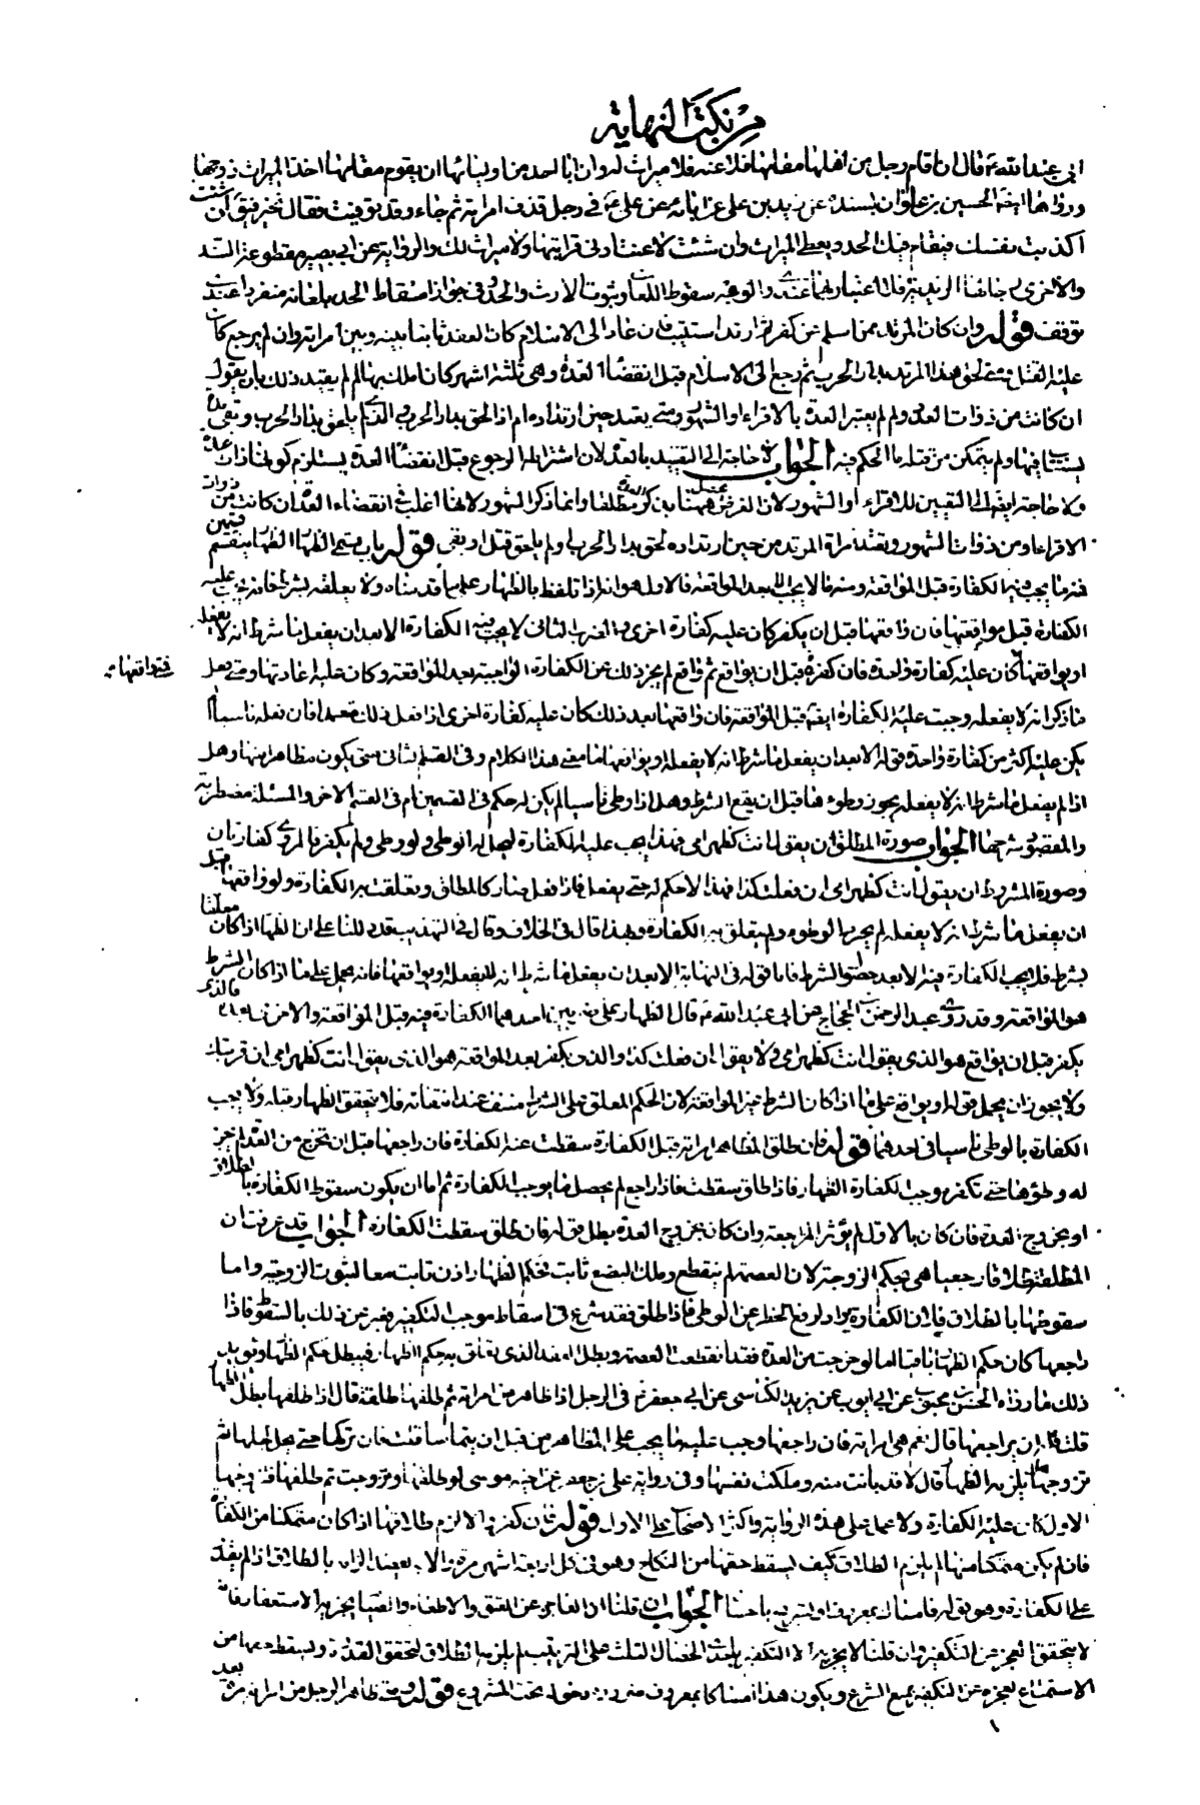 من نكت النهاية
ابى عبد الله ع قال ان قام رجل من اهلها مقامها فلاعنه فلا ميراث له وان ابا احد من اوليائها ان يقوم مقامها اخذ الميراث زوجها
ورواها ايضا الحسين بن علوان بسنده عن زيد بن على عن ابائه عن على ع فى رجل قذف امراته ثم جاء وقد توفيت فقال تخير فيق ان شئت
اكذبت نفسك فيقام فيك الحد ويعطى الميراث وان شئت لاعنت ادنى قرابتها ولا ميراث لك والرواية عن ابى بصير مقطوعة السند
والاخرى رجالها الزيدية فلا اعتبار بهما عندى والوجه سقوط اللعان وثبوت الارث والحد وفى جواز اسقاط الحد بلعانه منفردا عندى
توقف قوله وان كان المرتد ممن اسلم عن كفر ثم ارتد استتيب فان عاد الى الاسلام كان العقد ثابتا بينه وبين امراته وان لم يرجع كان
عليه القتل متى لحق هذا المرتد بدار الحرب ثم رجع الى الاسلام قبل انقضاء العدة وهى ثلثة اشهر كان املك بها لم لم يقيد ذلك بان يقول
ان كانت من ذوات العدد ولم لم يعتبر العدة بالاقراء او الشهور ومتى يعتد حين ارتداده ام اذا لحق بدار الحرب والذى يلحق بدار الحرب وتقى مدة
يستتاب فيها ولم يتمكن من قتله ما الحكم فيه الجواب لا حاجة الى التقييد بالعدد لان اشتراط الرجوع قبل انقضاء العدة يستلزم كونها ذات عدة
ولا حاجة ايضا الى التعيين للاقراء او الشهور لان الغرض ههنا يذكر مطلقا وانما ذكر الشهور لانها اغلب فى انقضاء العدة ان كانت من ذوات
الاقراء او من ذوات الشهور وتعتد امراة المرتد من حين ارتداده لحق بدار الحرب او لم يلحق قتل او بقى قوله باب قسم الظهار الظهار ينقسم قسمين
قسم منه يجب فيه الكفارة قبل المواقعة ومنه ما لا يجب الا بعد المواقعة فالاول هو انه اذا تلفظ بالظهار على ما قدمناه ولا يعلقه بشرط فانه يجب عليه
الكفارة قبل مواقعتها فان واقعها قبل ان يكفر كان عليه كفارة اخرى والضرب الثانى لا يجب فيه الكفارة الا بعد ان يفعل ما شرط انه لا يفعله
او يواقعها كان عليه كفارة واحدة فان كفر قبل ان يواقع ثم واقع لم يجز ذلك عن الكفارة الواجبة بعد المواقعة وكان عليه اعادتها ومتى فعل
فمتى واقعها
ما ذكر انه لا يفعله وجبت عليه الكفارة ايضا قبل المواقعة فان واقعها بعد ذلك كان عليه كفارة اخرى اذا فعل ذلك متعمدا فان فعله ناسيا لم
يكن عليه اكثر من كفارة واحدة قوله الا بعد ان يفعل ما شرط انه لا يفعله او يواقعها ما معنى هذا الكلام وفى القسم الثانى متى يكون مظاهرا منها وهل
اذا لم يفعل ما شرط انه لا يفعله يجوز وطؤها قبل ان يقع الشرط وهل اذا وطى ناسيا لم يكن له حكم فى القسمين ام فى القسم الاخر والمسئلة مضطربة
والمقصود شرحها الجواب صورة المطلق ان يقول انت كظهر امى فهذا يجب عليه الكفارة ليحل له الوطى ولو وطى ولم يكفر فالمروى كفارتان
وصورة المشروط ان يقول انت كظهر امى ان فعلت كذا فهذا لا حكم له حتى يفعل فاذا فعل صار كالمطلق وتعلقت به الكفارة ولو واقعها قبل
ان يفعل ما شرط انه لا يفعله لم يحرم الوطوء ولم يتعلق به الكفارة وبهذا قال فى الخلاف وقال فى التهذيب قد دللنا على ان الظهار اذا كان معلقا
بشرط فلا يجب الكفارة فيه الا بعد حصول الشرط فاما قوله فى النهاية الا بعد ان يفعل ما شرط انه لا يفعله او يواقعها فانه يحمل على ما اذا كان الشرط
هو المواقعة وقد روى عبد الرحمن بن الحجاج عن ابى عبد الله ع قال الظهار على ضربين احدهما الكفارة فيه قبل المواقعة والاخر بعدها فالذى
يكفر قبل ان يواقع هو الذى يقول انت كظهر امى ولا يقول ان فعلت كذا والذى يكفر بعد المواقعة هو الذى يقول انت كظهر امى ان قربتك
ولا يجوز ان يحمل قوله او يواقع على ما اذا كان الشرط غير المواقعة لان الحكم المعلق على الشرط منتف عند انتفائه فلا يتحقق الظهار قبله ولا يجب
الكفارة بالوطى ناسيا فى احدهما قوله فان طلق المظاهر امراته قبل الكفارة سقطت عنه الكفارة فان راجعها قبل ان تخرج من العدة لم يجز
له وطؤها حتى يكفر وجب الكفارة الظهار فاذا طلق سقطت فاذا راجع لم يحصل ما يوجب الكفارة ثم اما ان يكون سقوط الكفارة بالطلاق
او بخروج العدة فان كان بالاول لم يؤثر المراجعة وان كان بخروج العدة بطل قوله فان طلق سقطت الكفارة الجواب قد عرفت ان
المطلقة طلاقا رجعيا هى بحكم الزوجة لان العصمة لم ينقطع وملك البضع ثابت فحكم الظهار اذن ثابت معا لثبوت الزوجية واما
سقوطها بالطلاق فلان الكفارة يراد لرفع الحظر عن الوطى فاذا طلق فقد شرع فى اسقاط موجب التكفير فعبر عن ذلك بالسقوط فاذا
راجعها كان حكم الظهار ثابتا اما لو خرجت من العدة فقد انقطعت العصمة وبطل العقد الذى تعلق به حكم الظهار فيبطل حكم الظهار ويؤيد
ذلك ما رواه الحسن بن محبوب عن ابى ايوب عن يزيد الكناسى عن ابى جعفر ع فى الرجل اذا ظاهر من امراته ثم طلقها طلقة قال اذا طلقها بطل الظهار
قلت فله ان يراجعها قال نعم هى امراته فان راجعها وجب عليه ما يجب على المظاهر من قبل ان يتماسا قلت فان تركها حتى يحل اجلها ثم
تزوجها يلزمه الظهار قال لا قد بانت منه وملكت نفسها وفى رواية على بن جعفر عن اخيه موسى لو طلقها وتزوجت ثم طلقها فتزوجها
الاول كان عليه الكفارة ولا عمل على هذه الرواية واكثر الاصحاب على الاول قوله فان كفر والا الزم طلاقها اذا كان متمكنا من الكفارة
فان لم يكن متمكنا منها لم يلزم الطلاق كيف يسقط حقها من النكاح وهو فى كل اربعة اشهر مرة والا بعينه الزام بالطلاق اذا لم يقدر
على الكفارة وهو يقوله فامساك بمعروف او تسريح باحسان الجواب ان قلنا ان العاجز عن العتق والاطعام والصيام يجزيه الاستغفار فانه
لا يتحقق العجز عن التكفير وان قلنا لا يجزيه الا التكفير باحدى الخصال الثلث على الترتيب لم يلزمه الطلاق لتحقق القدرة ويسقط حقها من
الاستمتاع لعجزه عن التكفير بمنع الشرع ويكون هذا امساكا بمعروف تحت المشروع قوله ومتى ظاهر الرجل من امراته مرة بعد